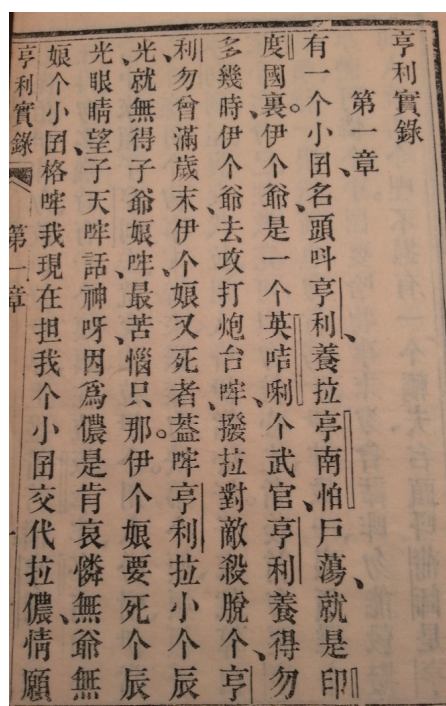 亨利實錄
第一章
有一个小囝、名頭呌亨利、養拉亭南怕戸蕩、就是印
度國裏。伊个爺、是一个英咭唎个武官、亨利養得勿
多幾時、伊个爺、去攻打炮台哰、撥拉對敵殺脫个、亨
利勿曾滿歲末、伊个娘又死者、蓋哰亨利拉小个辰
光、就無得子爺娘哰、最苦惱只。那伊个娘要死个辰
光、眼睛望子天哰話、神呀、因爲儂是肯哀憐無爺無
娘个小囝格哰、我現在担我个小囝交代拉儂、情願
亨利實錄 第一章